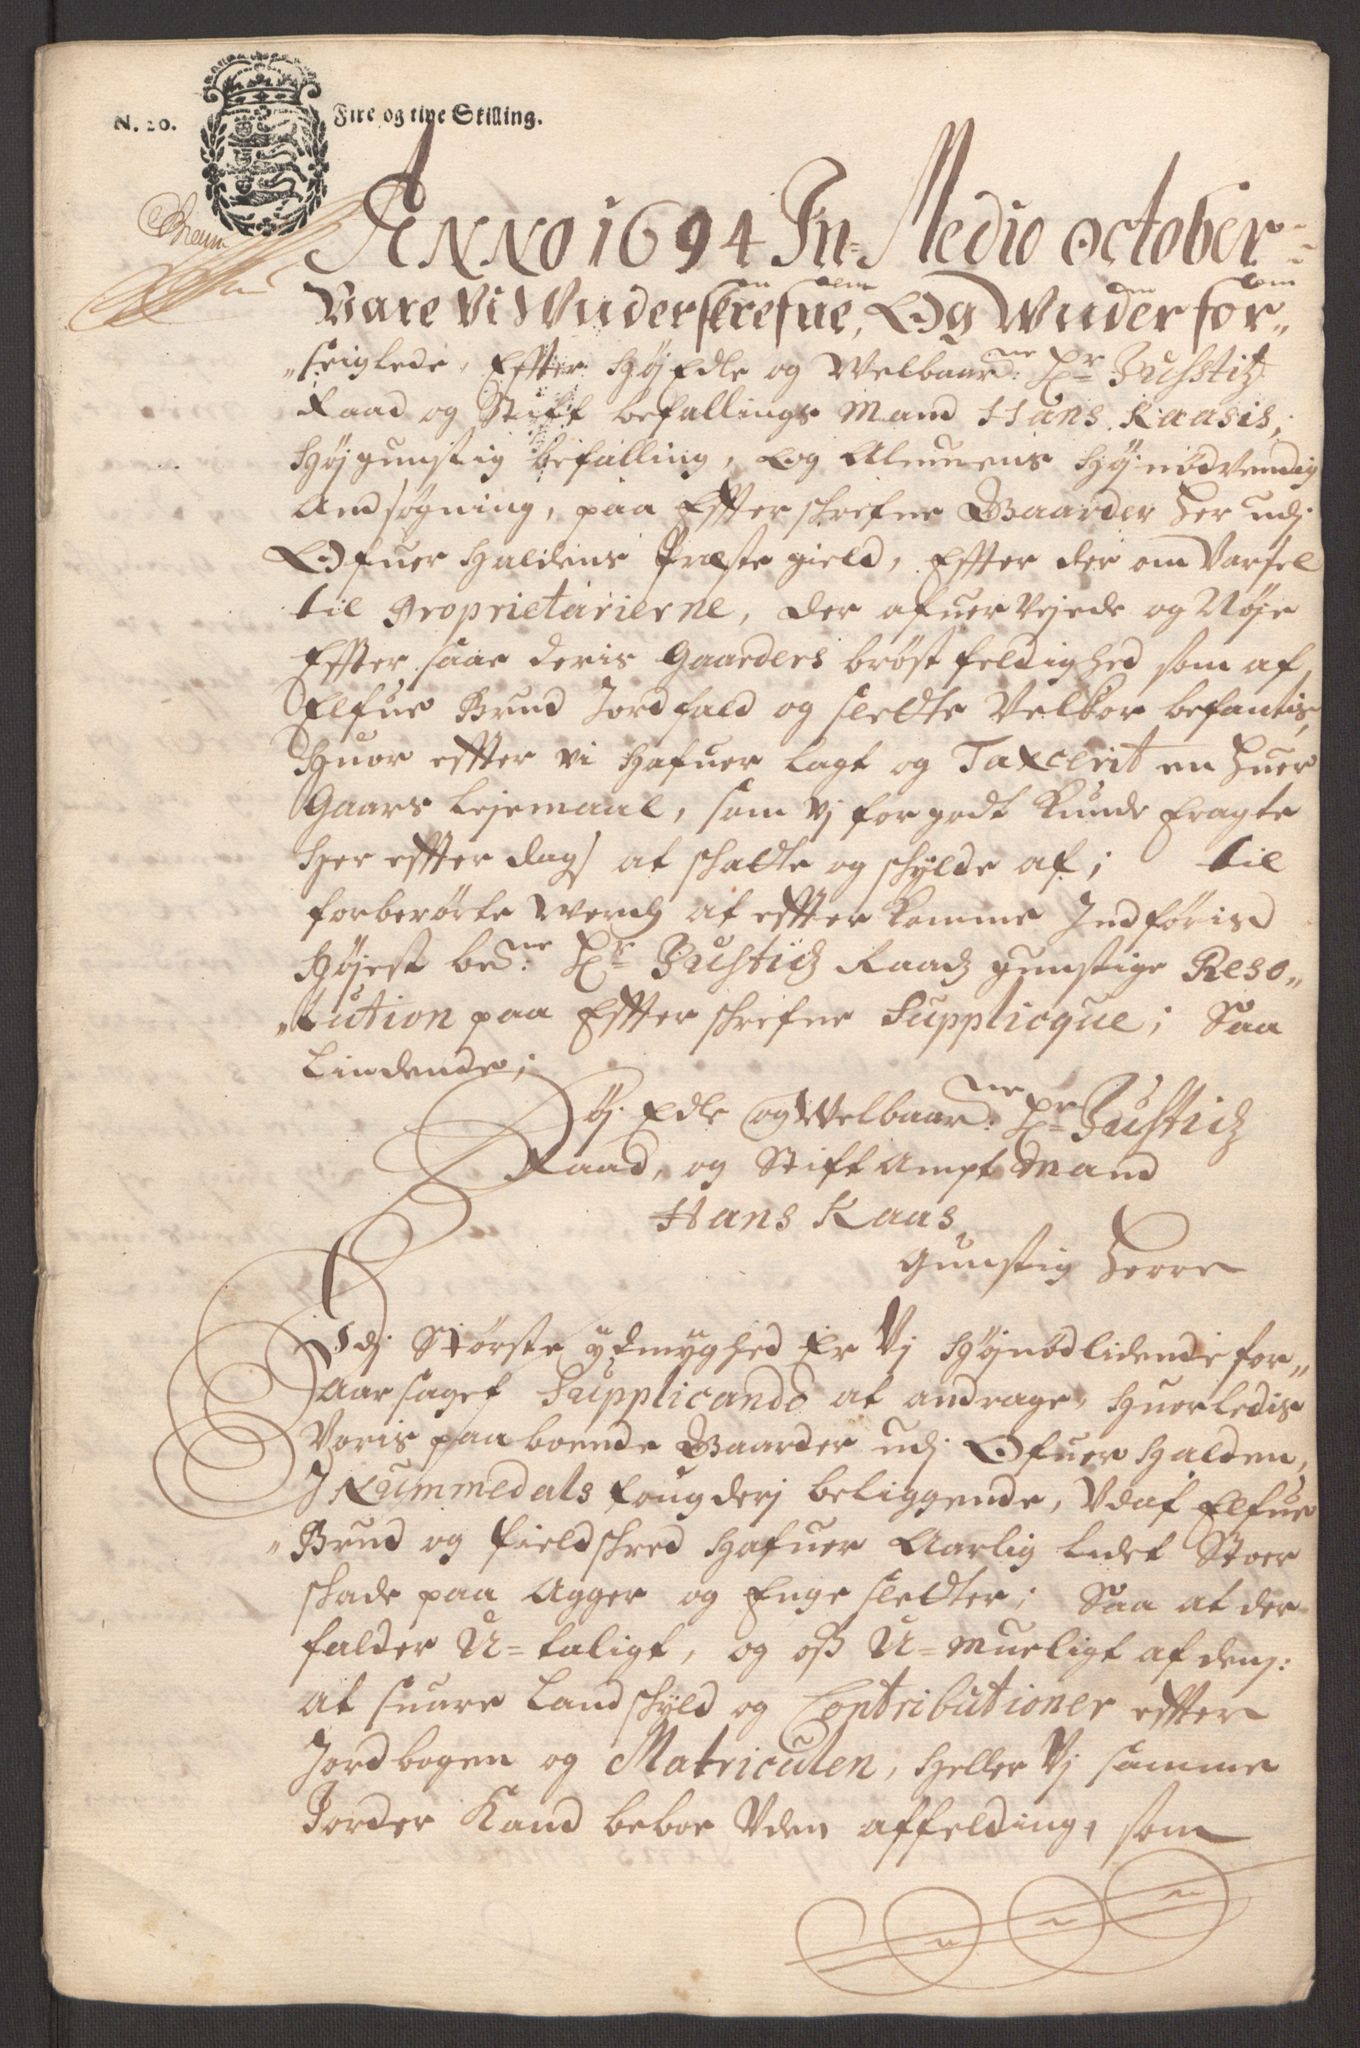 N. 20. Fire og tive Skilling.
Anno 1694 In Medio october
Vare Vi Wnderskrefne, Og Wnder for„
„seiglede, Effter Høy Edle og Welbaarne: Hr Justitz
Raad og Stift befallings Mand Hans Kaasis,
Højgunstig befalling, Og Almuens Høj nødvendig
Andsøgning, paa Effterschrefne Gaarder her udj
Ofuer Haldens Præste gield, Effter der om Varsel
til Proprietarierne, der ofuer Vejede og Nøje
Effter saae deris Gaarders brøstfeldighed som af
Elfue Brud Jordfald og slette Velkor befantis,
Huor effter vi Hafuer lagt og Taxcerit en huer
Gaars Lejemaal, som Vj for godt Kunde Eragte
Her effter dags at schatte og schylde af; til
forberørte Werch at effter komme Indføris
Højest bene: Hr Justitz Raadz gunstige Reso„
„lution paa Effterschrefne Supplicque; Saa
Liudende;
Høj Edle og Welbaarne: Hr Justitz
Raad, og Stift Ampt Mand
Hans Kaas
gunstig Herre
Udj Største ydmyghed Er Vj Højnødlidende for„
Aarsaget Supplicando at andrage, Huorledis
Voris paaboende Gaarder udj Ofuer Halden,
J Nummedals fougderj beliggende, Vdaf Elfue
„Brud og fieldschred Hafuer Aarlig Lidet Stoer
schade paa Agger og Enge sletter; Saa at der
falder U=taligt, og oß U=mueligt af dens:
at suare Landschyld og Contributioner effter
Jordbogen og Matriculen, Heller Vj samme
Jorder Kand beboe Vden affelding, som